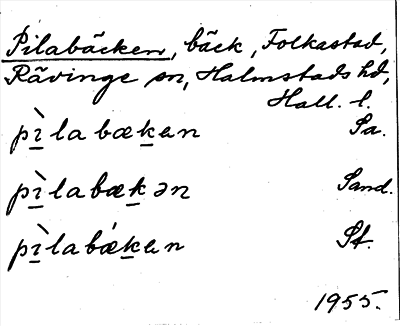 Pilabäcken, bäck, Folkastad,
Rävinge sn, Halmstads hd,
Hall. l.
pìlabækan Sa.
pìlabækən Sand.
pìlabǽkan St.
1955.